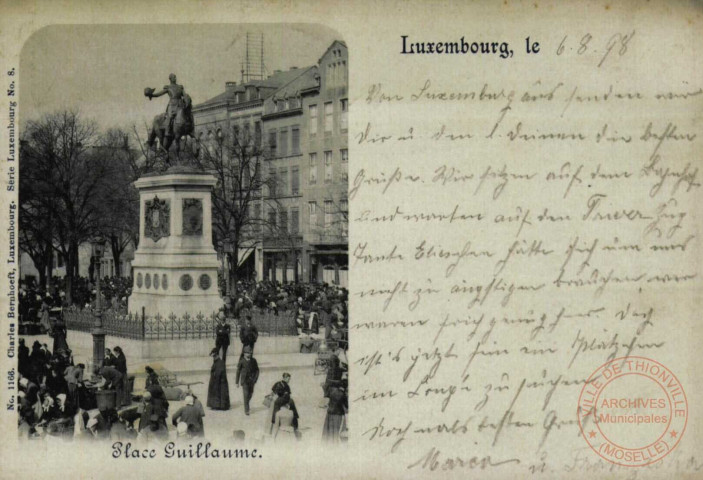 No. 1166. Charles Bernhoeft, Luxembourg. Série Luxembourg No. 8.
Place Guillaume.
Luxembourg, le 6.8.98
Von Luxemburg aus senden wir
Dir u. den l. Deinen die besten
Grüße. Wir sitzen auf dem Bahnhof
und warten auf den Trierer Zug
Tante Lieschen hätte sich um uns
nicht zu ängstigen brauchen, wir
waren früh genug hier. Doch
ist's jetzt ein Plätzchen
im zu suchen
Nochmals besten Gruß
Maria u. Franziska
VILLE DE THIONVILLE
ARCHIVES
Municipales
(MOSELLE)